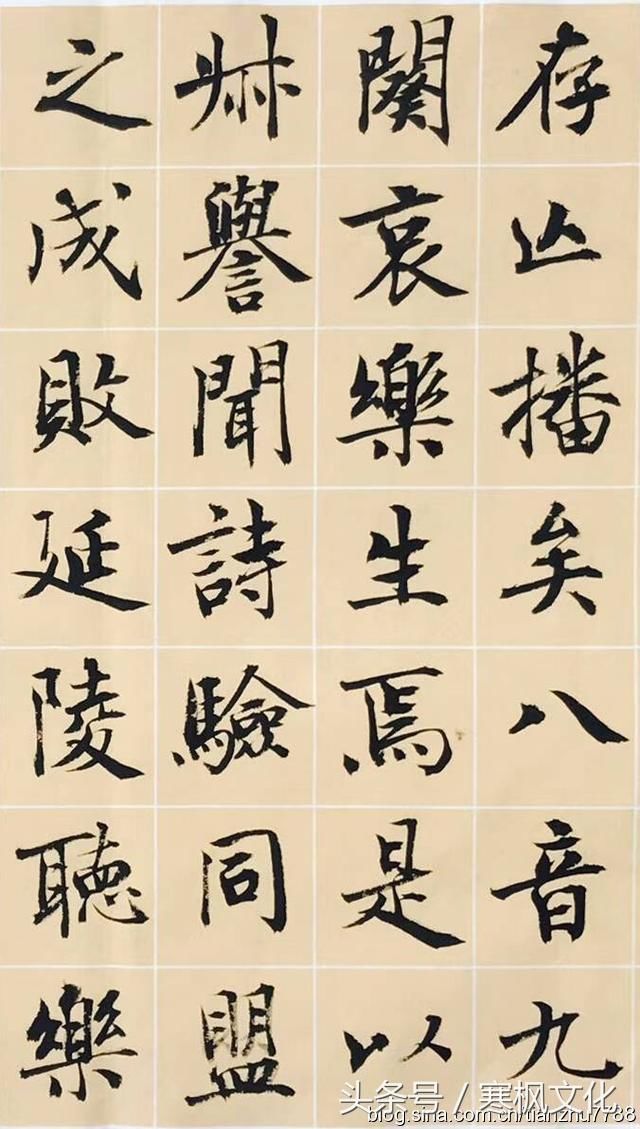 存亾播矣八音九
闋哀樂生焉是以
叔譽聞詩驗同盟
之成敗延陵聽樂
头条号 / 寒枫文化
blog.sina.com.cn/tianzhu7788